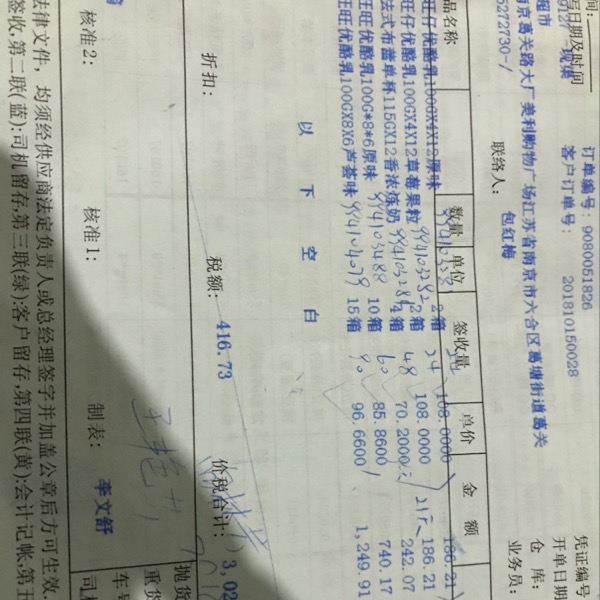 订单编号: 9080051826
凭证编号
写日期及时间
客户订单号: 201810150028
开单日期
9127 现渠
仓 库:
阳市
联络人: 包红梅
业务员:
南京葛关路大厂美利购物广场江苏省南京市六合区葛塘街道葛关
5272730-/
品名称 数量 单位 签收量 单价 金 额
旺仔优酪乳100GX4X12原味 2箱 108.0000 186.21
旺仔优酪乳100GX4X12草莓果粒 9941035282 2箱 24 108.0000 186.21
法式布蕾单杯115GX12香浓炼奶 2箱 48 70.2000 242.07
旺旺优酪乳100G*8*6原味 9941103488 10箱 60 85.8600 740.17
旺旺优酪乳100GX8X6芦荟味 9941104079 15箱 90 96.6600 1,249.91
以 下 空 白
折扣: 税额: 416.73 价税合计: 3,02
核准2: 核准1: 制表: 李文舒
抛货
重货
车号
司机
法律文件, 均须经供应商法定负责人或总经理签字并加盖公章后方可生效.
签收,第二联(蓝):司机留存,第三联(绿):客户留存,第四联(黄):会计记帐,第五